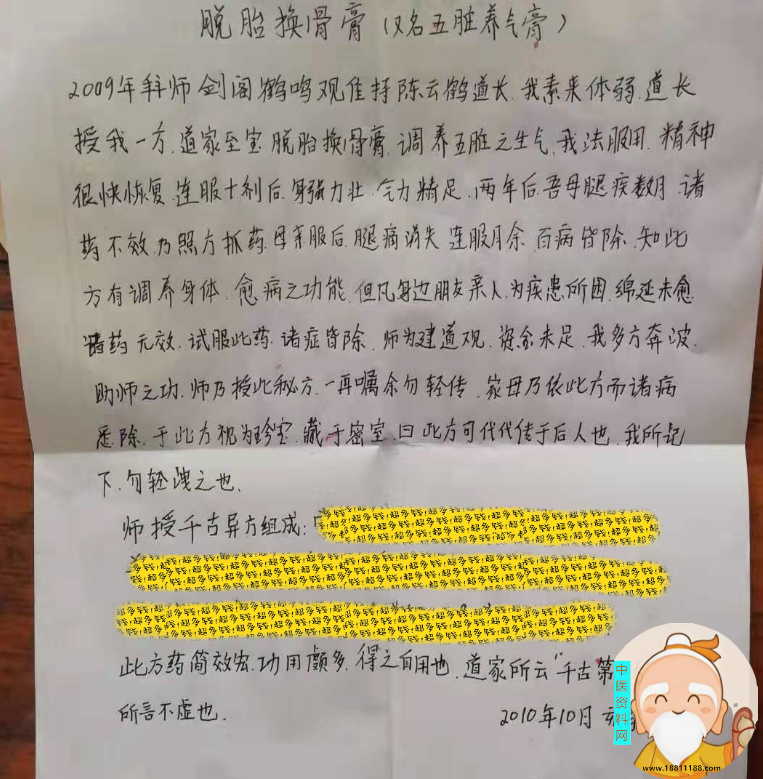 脱胎换骨膏（又名五脏养气膏）
2009年拜师剑阁鹤鸣观住持陈云鹤道长.我素来体弱.道长
授我一方.道家至宝脱胎换骨膏.调养五脏之生气.我法服用.精神
很快恢复.连服十剂后.身强力壮.气力精足.两年后.吾母腿疾数月.诸
药不效.乃照方抓药.母亲服后.腿病消失.连服月余.百病皆除.知此
方有调养身体.愈病之功能.但凡身边朋友亲人.为疾患所困.绵延未愈
诸药无效.试服此药.诸症皆除.师为建道观.资金未足.我多方奔波.
助师之功.师乃授此秘方.一再嘱余勿轻传.家母乃依此方而诸病
悉除.于此方视为珍宝.藏于密室.曰此方可代代传于后人也.我所记
下.勿轻洩之也.
师授千古异方组成:
此方药简效宏.功用颇多.得之自用也.道家所云“千古第
所言不虚也.
2010年10月
中医资料网
www.18811188.com